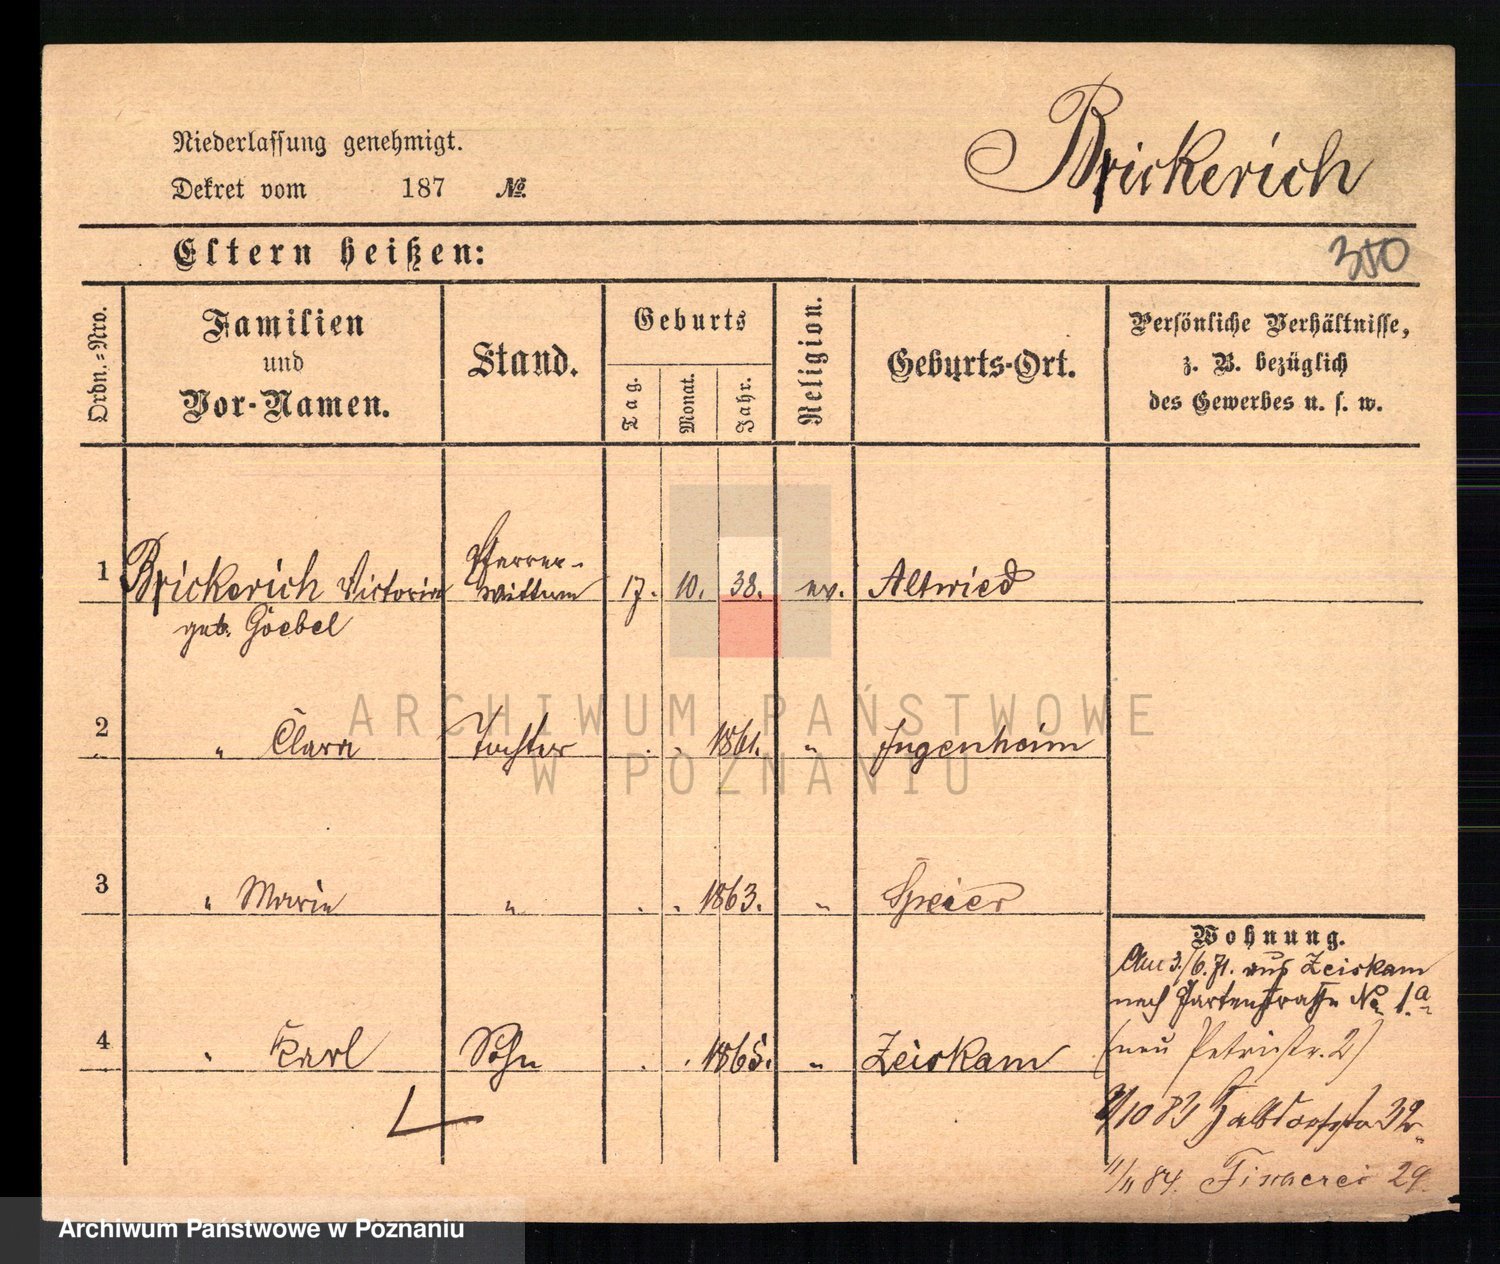 Niederlassung genehmigt.
Brickerich
Dekret vom 187 №
Eltern heißen:
350
Ordn.-Nro.
Familien und Vor-Namen.
Stand.
Geburts
Tag.
Monat.
Jahr.
Religion.
Geburts-Ort.
Persönliche Verhältnisse,
z. B. bezüglich
des Gewerbes u. s. w.
Pfarrer-
1 Brickerich Victoria Wittwe 17. 10. 38. ev. Altwied
geb. Goebel
2 " Clara Tochter . . 1861. " Jugenheim
3 " Marie " . . 1863. " Speier
Wohnung.
Am 3/6.71. aus Zeiskam
nach Gartenstraße No 1.a
4 " Karl Sohn . . 1865. " Zeiskam
(neu Petristr. 2)
/10 83 Halbdorfstr 32
11/11 84. Fischerei 29
ARCHIWUM PAŃSTWOWE
W POZNANIU
Archiwum Państwowe w Poznaniu